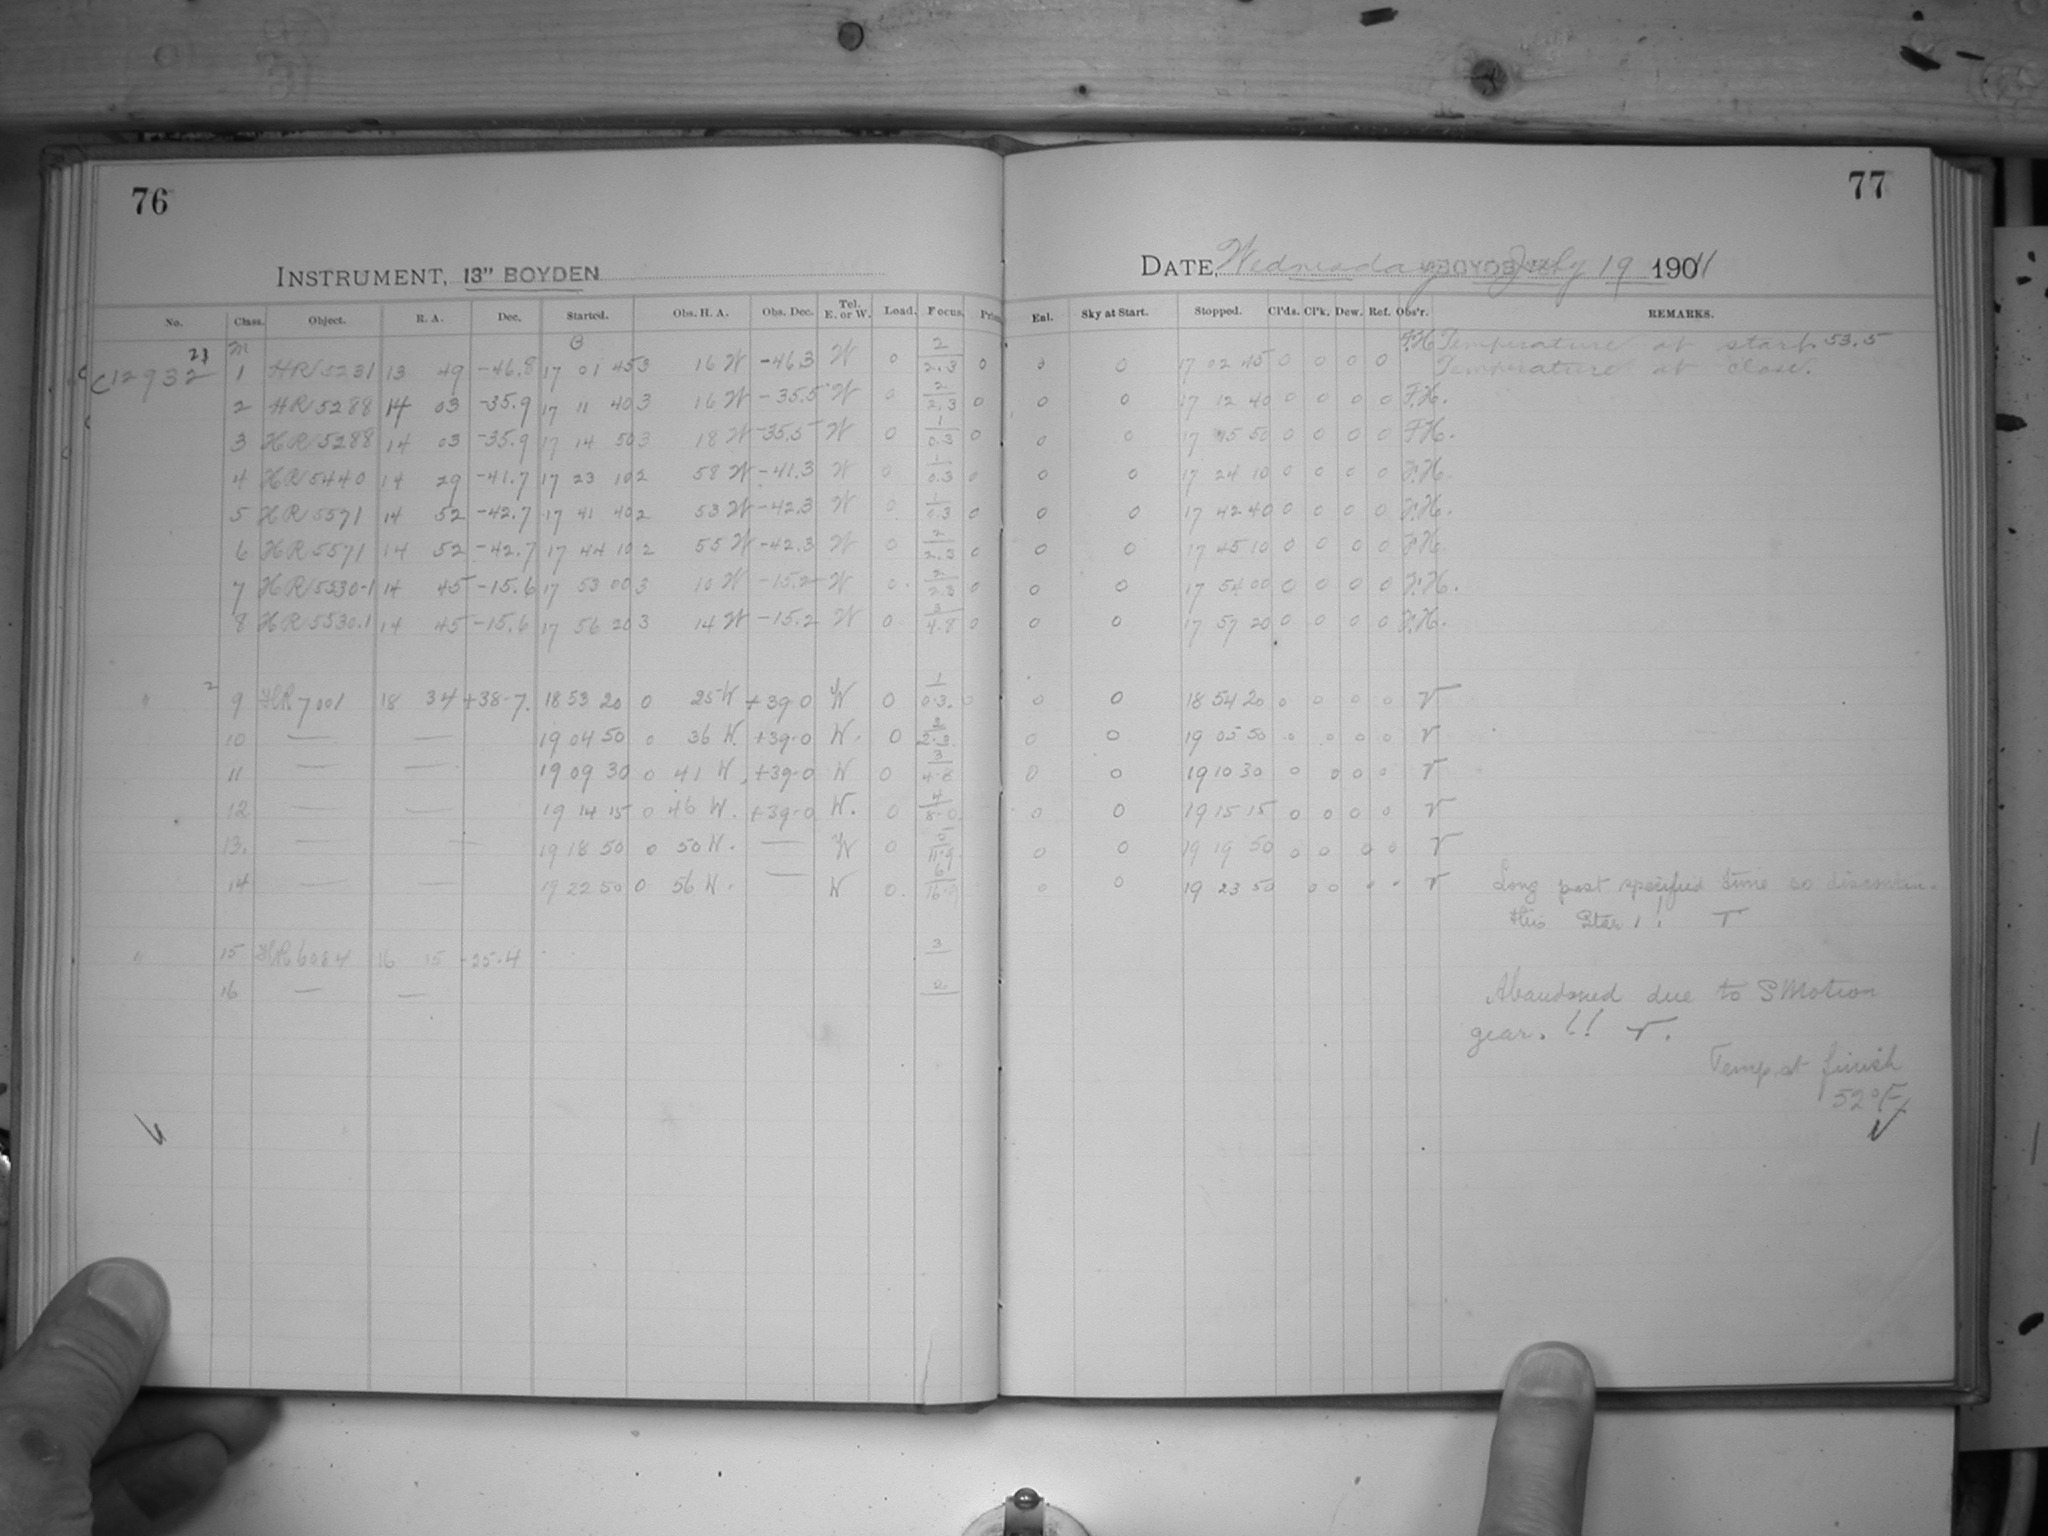 76
77
INSTRUMENT, 13" BOYDEN
DATE, Wednesday July 19 1911
No. Class. Object. R. A. Dec. Started. Obs. H. A. Obs. Dec. Tel. E. or W. Load. Focus. Prism
Enl. Sky at Start. Stopped. Cl'ds. Cl'k. Dew. Ref. Obs'r. REMARKS.
F.H. Temperature at start 53.5
C12932 1 HR5231 13 49 -46.8 17 01 45 3 16 W -46.3 W 0 2/2.3 0 0 0 17 02 45 0 0 0 0 Temperature at close.
2 HR5288 14 03 -35.9 17 11 40 3 16 W -35.5 W 0 2/2.3 0 0 0 17 12 40 0 0 0 0 F.H.
3 HR5288 14 03 -35.9 17 14 50 3 18 W -35.5 W 0 1/0.3 0 0 0 17 15 50 0 0 0 0 F.H.
4 HR5440 14 29 -41.7 17 23 10 2 58 W -41.3 W 0 1/0.3 0 0 0 17 24 10 0 0 0 0 F.H.
5 HR5571 14 52 -42.7 17 41 40 2 53 W -42.3 W 0 1/0.3 0 0 0 17 42 40 0 0 0 0 F.H.
6 HR5571 14 52 -42.7 17 44 10 2 55 W -42.3 W 0 2/2.3 0 0 0 17 45 10 0 0 0 0 F.H.
7 HR5530-1 14 45 -15.6 17 53 00 3 10 W -15.2 W 0 2/2.3 0 0 0 17 54 00 0 0 0 0 F.H.
8 HR5530.1 14 45 -15.6 17 56 20 3 14 W -15.2 W 0 3/4.8 0 0 0 17 57 20 0 0 0 0 F.H.
" 2 9 HR7001 18 34 +38-7. 18 53 20 0 25 W +39-0 W 0 1/0.3. 0 0 0 18 54 20 0 0 0 0
10 — — 19 04 50 0 36 W. +39-0 W. 0 2.3. 0 0 19 05 50 0 0 0 0
11 — — 19 09 30 0 41 W +39-0 W 0 3/4-8 0 0 19 10 30 0 0 0 0
12 — — 19 14 15 0 46 W. +39-0 W. 0 4/8-0 0 0 19 15 15 0 0 0 0
13. — — 19 18 50 0 50 W. — W 0 5/11.9 0 0 19 19 50 0 0 0 0
14 — — 19 22 50 0 56 W. — W 0. 6 0 0 19 23 50 0 0 0 0 Long past specified time so
this Star !! T
" 15 HR6084 16 15 -25.4 3
16 — — 2 Abandoned due to S Motion
gear. !! T.
Temp at finish
52°F